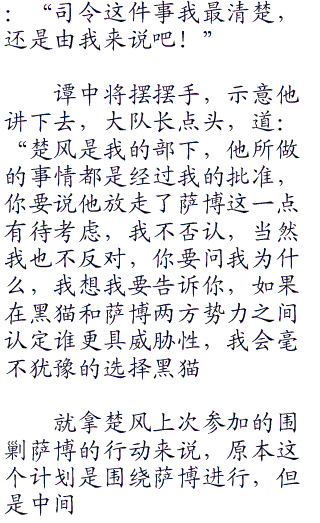 ：“司令这件事我最清楚，
还是由我来说吧！”
谭中将摆摆手，示意他
讲下去，大队长点头，道：
“楚风是我的部下，他所做
的事情都是经过我的批准，
你要说他放走了萨博这一点
有待考虑，我不否认，当然
我也不反对，你要问我为什
么，我想我要告诉你，如果
在黑猫和萨博两方势力之间
认定谁更具威胁性，我会毫
不犹豫的选择黑猫
就拿楚风上次参加的围
剿萨博的行动来说，原本这
个计划是围绕萨博进行，但
是中间